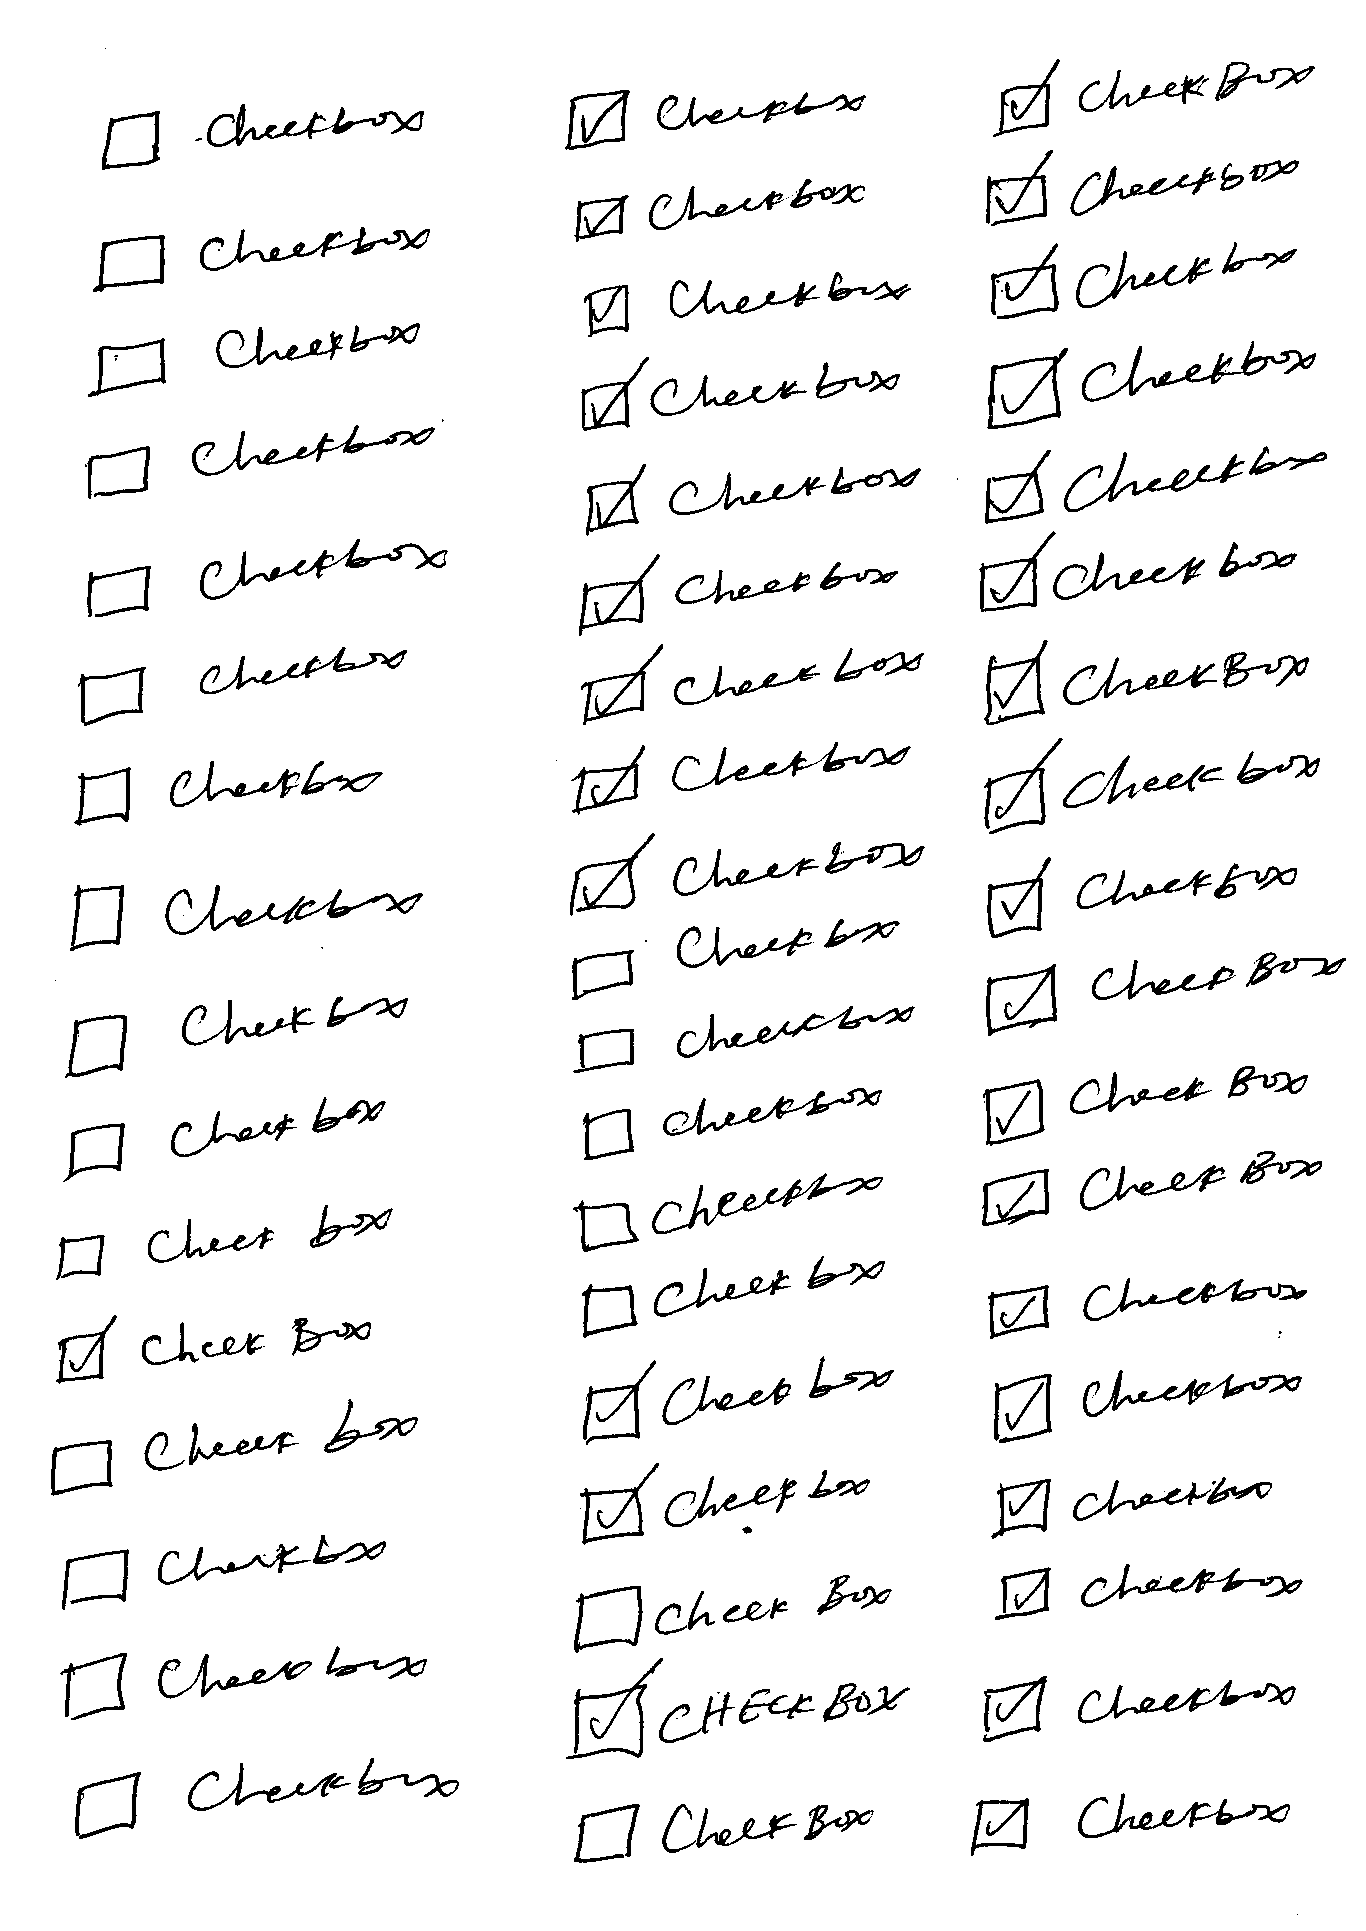 ☐ Checkbox
☐ Checkbox
☐ Checkbox
☐ Checkbox
☐ Checkbox
☐ Checkbox
☐ Checkbox
☐ Checkbox
☐ Check box
☐ Check box
☐ Check box
☑ Check Box
☐ Check box
☐ Checkbox
☐ Check box
☐ Checkbox
☑ Checkbox
☑ Checkbox
☑ Checkbox
☑ Check box
☑ Checkbox
☑ Check box
☑ Check box
☑ Checkbox
☑ Checkbox
☐ Check box
☐ Checkbox
☐ Checkbox
☐ Checkbox
☐ Check box
☑ Check box
☑ Check box
☐ Check Box
☑ CHECK BOX
☐ Check Box
☑ Check Box
☑ Checkbox
☑ Checkbox
☑ Checkbox
☑ Checkbox
☑ Check box
☑ Check Box
☑ Check box
☑ Checkbox
☑ Check Box
☑ Check Box
☑ Check Box
☑ Checkbox
☑ Checkbox
☑ Checkbox
☑ Checkbox
☑ Checkbox
☑ Checkbox